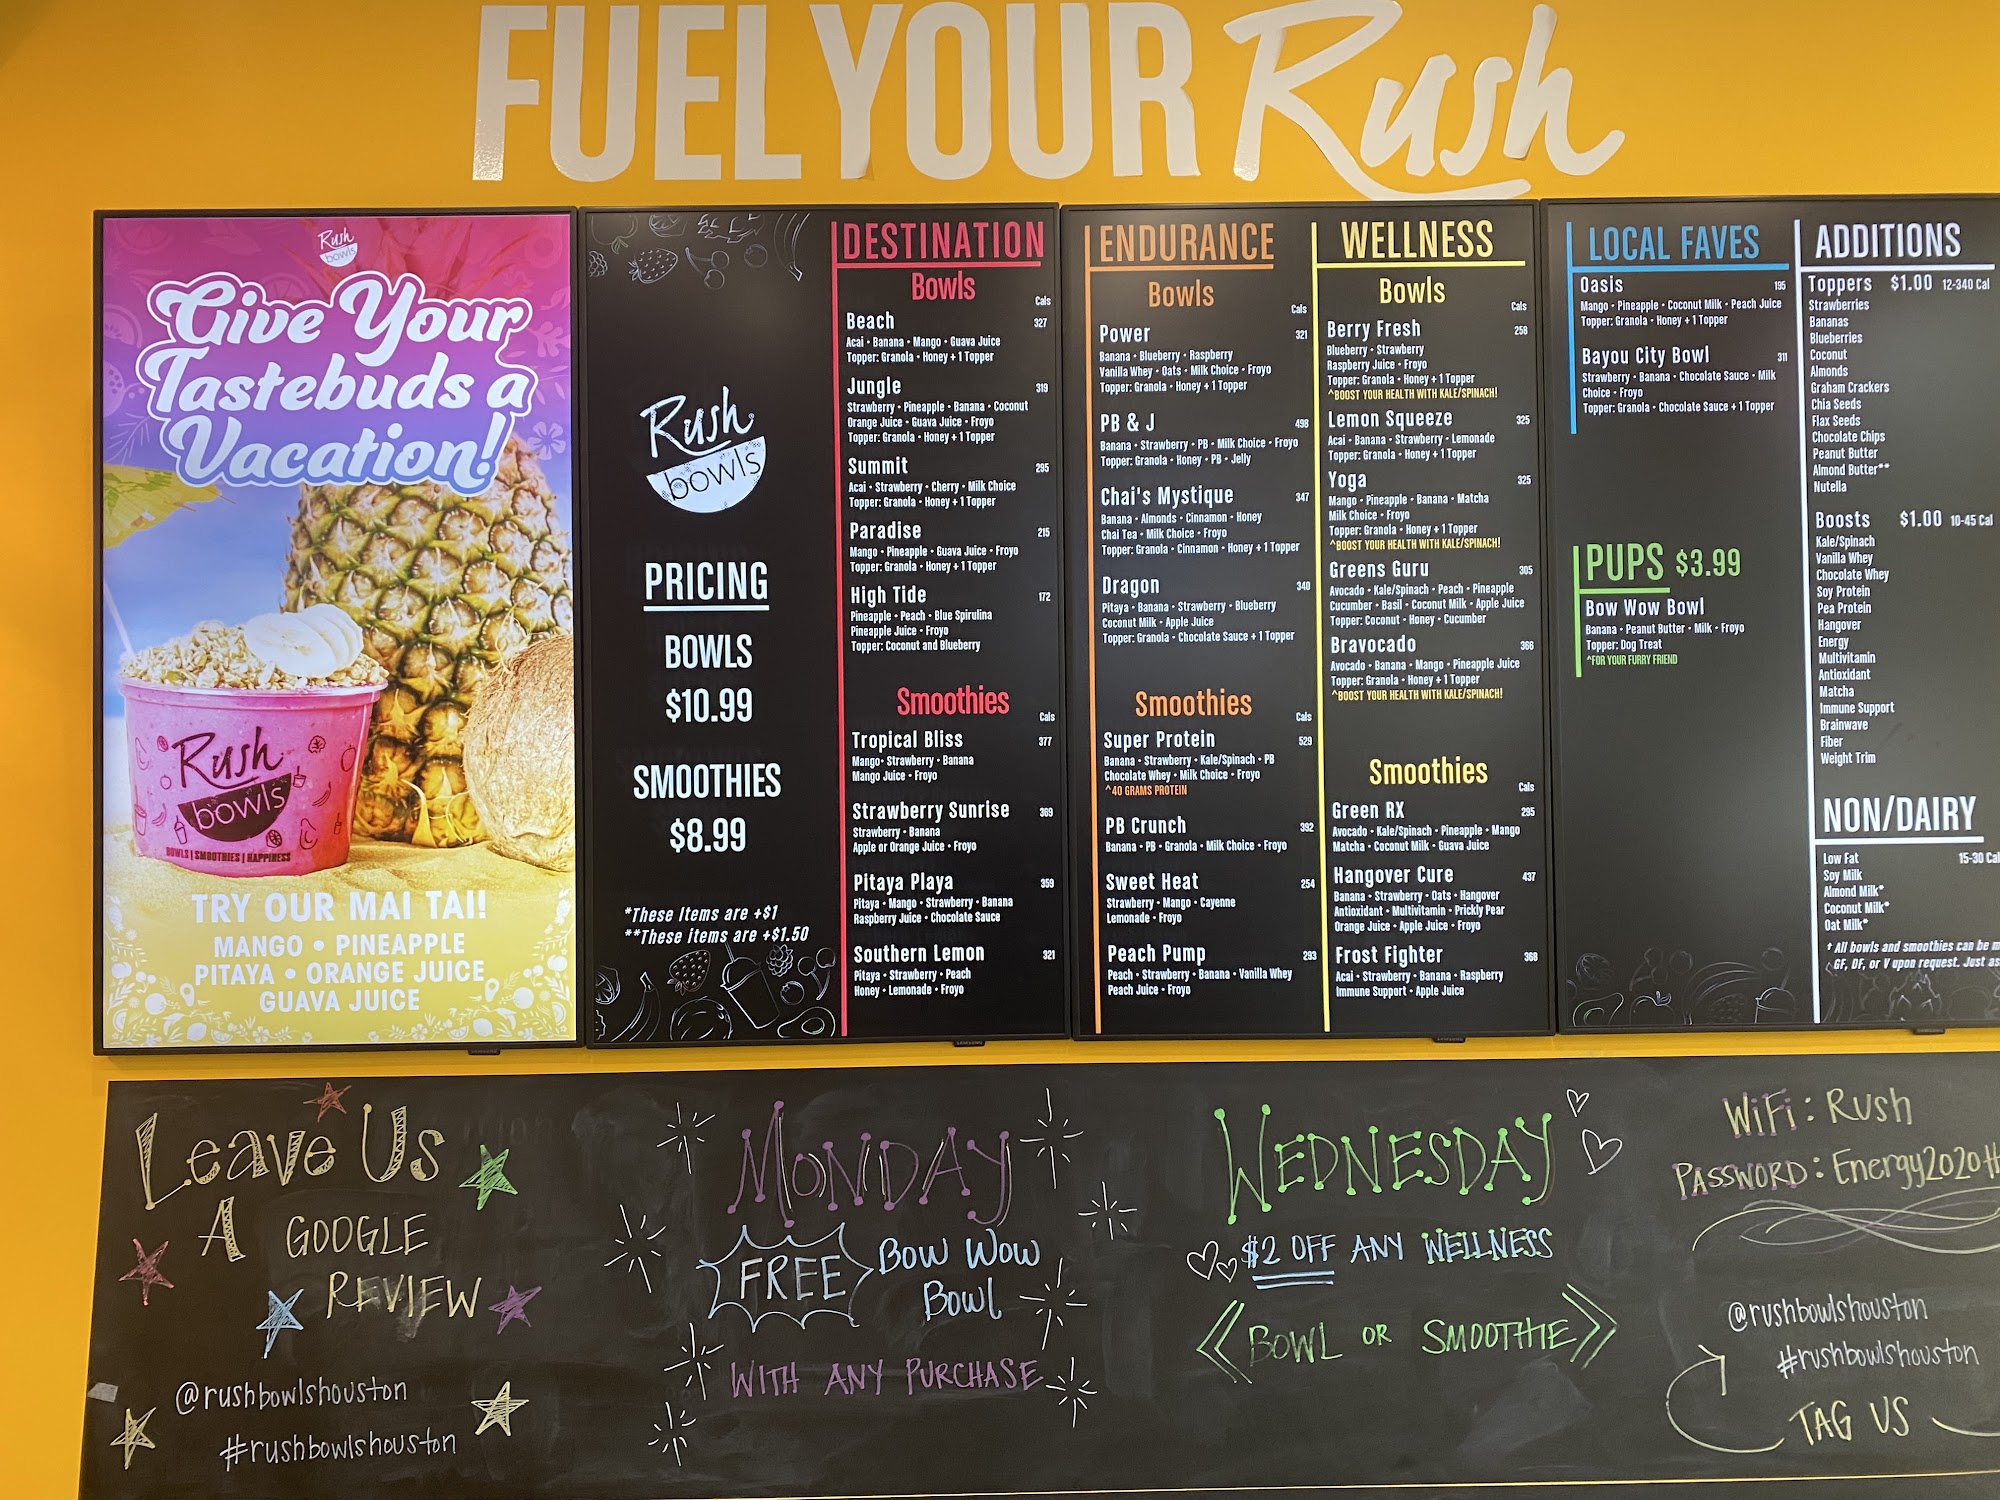 FUEL YOUR Rush
Rush
bowls
Give Your
Tastebuds a
Vacation!
Rush
bowls
BOWLS | SMOOTHIES | HAPPINESS
TRY OUR MAI TAI!
MANGO • PINEAPPLE
PITAYA • ORANGE JUICE
GUAVA JUICE
Rush
bowls
PRICING
BOWLS
$10.99
SMOOTHIES
$8.99
*These Items are +$1
**These items are +$1.50
DESTINATION
Bowls
Cals
Beach 327
Acai • Banana • Mango • Guava Juice
Topper: Granola • Honey + 1 Topper
Jungle 319
Strawberry • Pineapple • Banana • Coconut
Orange Juice • Guava Juice • Froyo
Topper: Granola • Honey + 1 Topper
Summit 295
Acai • Strawberry • Cherry • Milk Choice
Topper: Granola • Honey + 1 Topper
Paradise 215
Mango • Pineapple • Guava Juice • Froyo
Topper: Granola • Honey + 1 Topper
High Tide 172
Pineapple • Peach • Blue Spirulina
Pineapple Juice • Froyo
Topper: Coconut and Blueberry
Smoothies
Cals
Tropical Bliss 377
Mango• Strawberry • Banana
Mango Juice • Froyo
Strawberry Sunrise 369
Strawberry • Banana
Apple or Orange Juice • Froyo
Pitaya Playa 359
Pitaya • Mango • Strawberry • Banana
Raspberry Juice • Chocolate Sauce
Southern Lemon 321
Pitaya • Strawberry • Peach
Honey • Lemonade • Froyo
ENDURANCE
Bowls
Cals
Power 321
Banana • Blueberry • Raspberry
Vanilla Whey • Oats • Milk Choice • Froyo
Topper: Granola • Honey + 1 Topper
PB & J 498
Banana • Strawberry • PB • Milk Choice • Froyo
Topper: Granola • Honey • PB • Jelly
Chai's Mystique 347
Banana • Almonds • Cinnamon • Honey
Chai Tea • Milk Choice • Froyo
Topper: Granola • Cinnamon • Honey + 1 Topper
Dragon 340
Pitaya • Banana • Strawberry • Blueberry
Coconut Milk • Apple Juice
Topper: Granola • Chocolate Sauce + 1 Topper
Smoothies
Cals
Super Protein 529
Banana • Strawberry • Kale/Spinach • PB
Chocolate Whey • Milk Choice • Froyo
^40 GRAMS PROTEIN
PB Crunch 392
Banana • PB • Granola • Milk Choice • Froyo
Sweet Heat 254
Strawberry • Mango • Cayenne
Lemonade • Froyo
Peach Pump 293
Peach • Strawberry • Banana • Vanilla Whey
Peach Juice • Froyo
WELLNESS
Bowls
Cals
Berry Fresh 258
Blueberry • Strawberry
Raspberry Juice • Froyo
Topper: Granola • Honey + 1 Topper
^BOOST YOUR HEALTH WITH KALE/SPINACH!
Lemon Squeeze 325
Acai • Banana • Strawberry • Lemonade
Topper: Granola • Honey + 1 Topper
Yoga 325
Mango • Pineapple • Banana • Matcha
Milk Choice • Froyo
Topper: Granola • Honey + 1 Topper
^BOOST YOUR HEALTH WITH KALE/SPINACH!
Greens Guru 305
Avocado • Kale/Spinach • Peach • Pineapple
Cucumber • Basil • Coconut Milk • Apple Juice
Topper: Coconut • Honey • Cucumber
Bravocado 366
Avocado • Banana • Mango • Pineapple Juice
Topper: Granola • Honey + 1 Topper
^BOOST YOUR HEALTH WITH KALE/SPINACH!
Smoothies
Cals
Green RX 295
Avocado • Kale/Spinach • Pineapple • Mango
Matcha • Coconut Milk • Guava Juice
Hangover Cure 437
Banana • Strawberry • Oats • Hangover
Antioxidant • Multivitamin • Prickly Pear
Orange Juice • Apple Juice • Froyo
Frost Fighter 368
Acai • Strawberry • Banana • Raspberry
Immune Support • Apple Juice
LOCAL FAVES
Oasis 195
Mango • Pineapple • Coconut Milk • Peach Juice
Topper: Granola • Honey + 1 Topper
Bayou City Bowl 311
Strawberry • Banana • Chocolate Sauce • Milk
Choice • Froyo
Topper: Granola • Chocolate Sauce + 1 Topper
PUPS $3.99
Bow Wow Bowl
Banana • Peanut Butter • Milk • Froyo
Topper: Dog Treat
^FOR YOUR FURRY FRIEND
ADDITIONS
Toppers $1.00 12-340 Cal
Strawberries
Bananas
Blueberries
Coconut
Almonds
Graham Crackers
Chia Seeds
Flax Seeds
Chocolate Chips
Peanut Butter
Almond Butter**
Nutella
Boosts $1.00 10-45 Cal
Kale/Spinach
Vanilla Whey
Chocolate Whey
Soy Protein
Pea Protein
Hangover
Energy
Multivitamin
Antioxidant
Matcha
Immune Support
Brainwave
Fiber
Weight Trim
NON/DAIRY
Low Fat 15-30 Cal
Soy Milk
Almond Milk*
Coconut Milk*
Oat Milk*
† All bowls and smoothies can be m
GF, DF, or V upon request. Just as
SAMSUNG
SAMSUNG
SAMSUNG
Leave Us
A GOOGLE
REVIEW
@rushbowlshouston
#rushbowlshouston
MONDAY
FREE Bow Wow
Bowl
WITH ANY PURCHASE
WEDNESDAY
$2 OFF ANY WELLNESS
BOWL OR SMOOTHIE
WiFi: Rush
PASSWORD: Energy2020#
@rushbowlshouston
#rushbowlshouston
TAG US